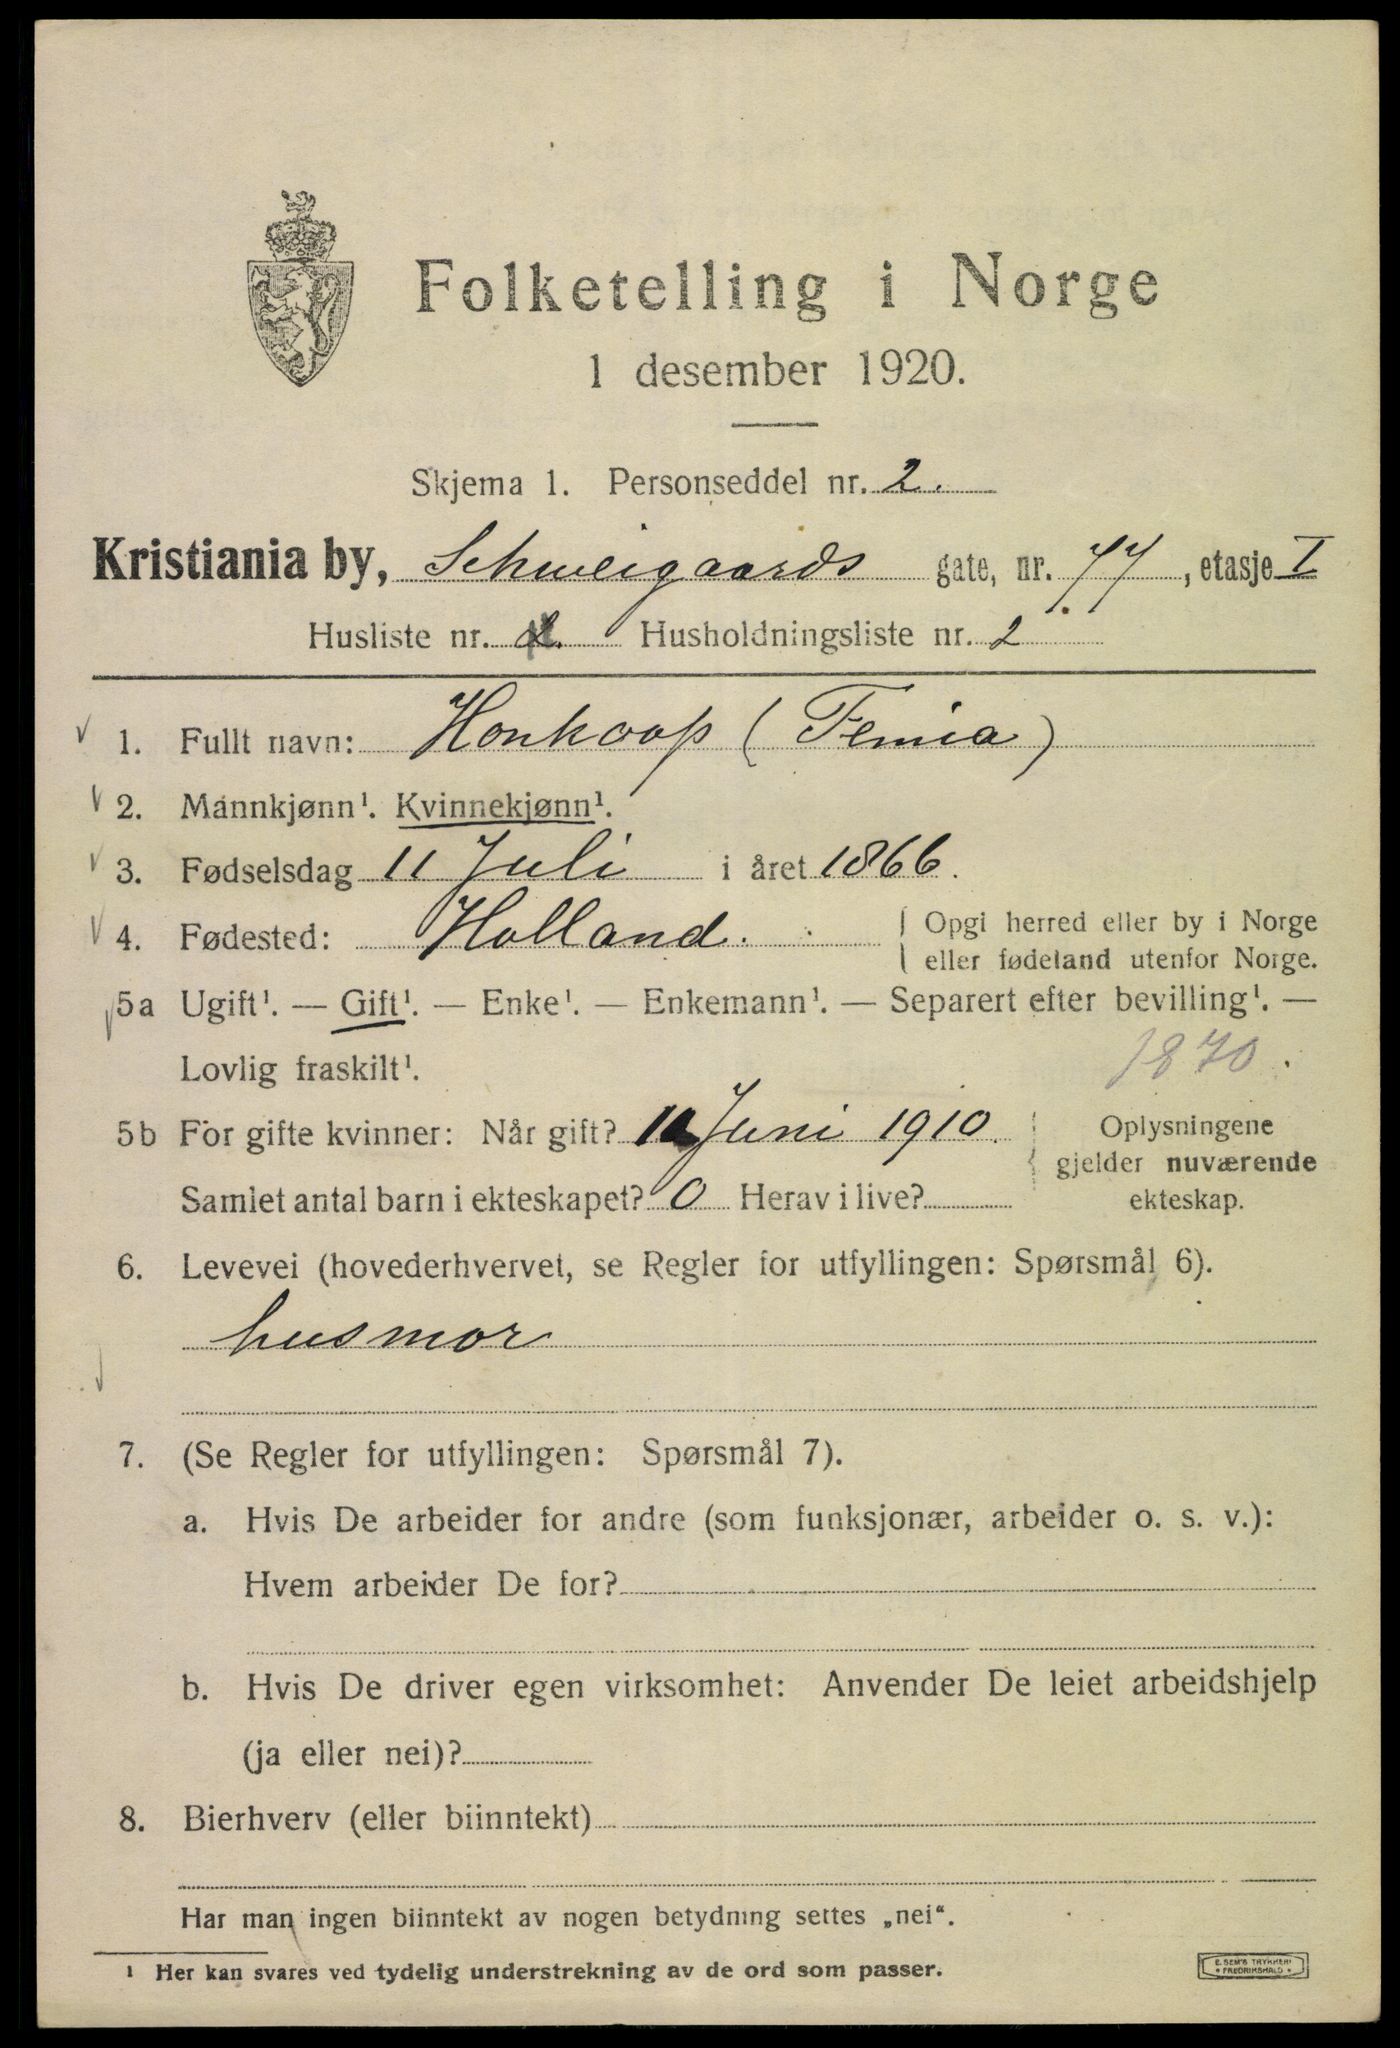 Folketelling i Norge
1 desember 1920.
Skjema 1. Personseddel nr. 2.
Kristiania by, Schweigaards gate, nr. 77, etasje I
Husliste nr. Husholdningsliste nr. 2
1. Fullt navn: Honkoop (Femia)
2. Mannkjønn¹. Kvinnekjønn¹.
3. Fødselsdag 11 Juli i året 1866.
4. Fødested: Holland. Opgi herred eller by i Norge
eller fødeland utenfor Norge.
5a Ugift¹. — Gift¹. — Enke¹. — Enkemann¹. — Separert efter bevilling¹. —
Lovlig fraskilt¹. 1870.
5b For gifte kvinner: Når gift? Juni 1910. Oplysningene
gjelder nuværende
Samlet antal barn i ekteskapet? 0 Herav i live? ekteskap.
6. Levevei (hovederhvervet, se Regler for utfyllingen: Spørsmål 6).
husmor
7. (Se Regler for utfyllingen: Spørsmål 7).
a. Hvis De arbeider for andre (som funksjonær, arbeider o. s. v.):
Hvem arbeider De for?
b. Hvis De driver egen virksomhet: Anvender De leiet arbeidshjelp
(ja eller nei)?
8. Bierhverv (eller biinntekt)
Har man ingen biinntekt av nogen betydning settes „nei“.
¹ Her kan svares ved tydelig understrekning av de ord som passer.
E. SEM'S TRYKKERI
* FREDRIKSHALD *